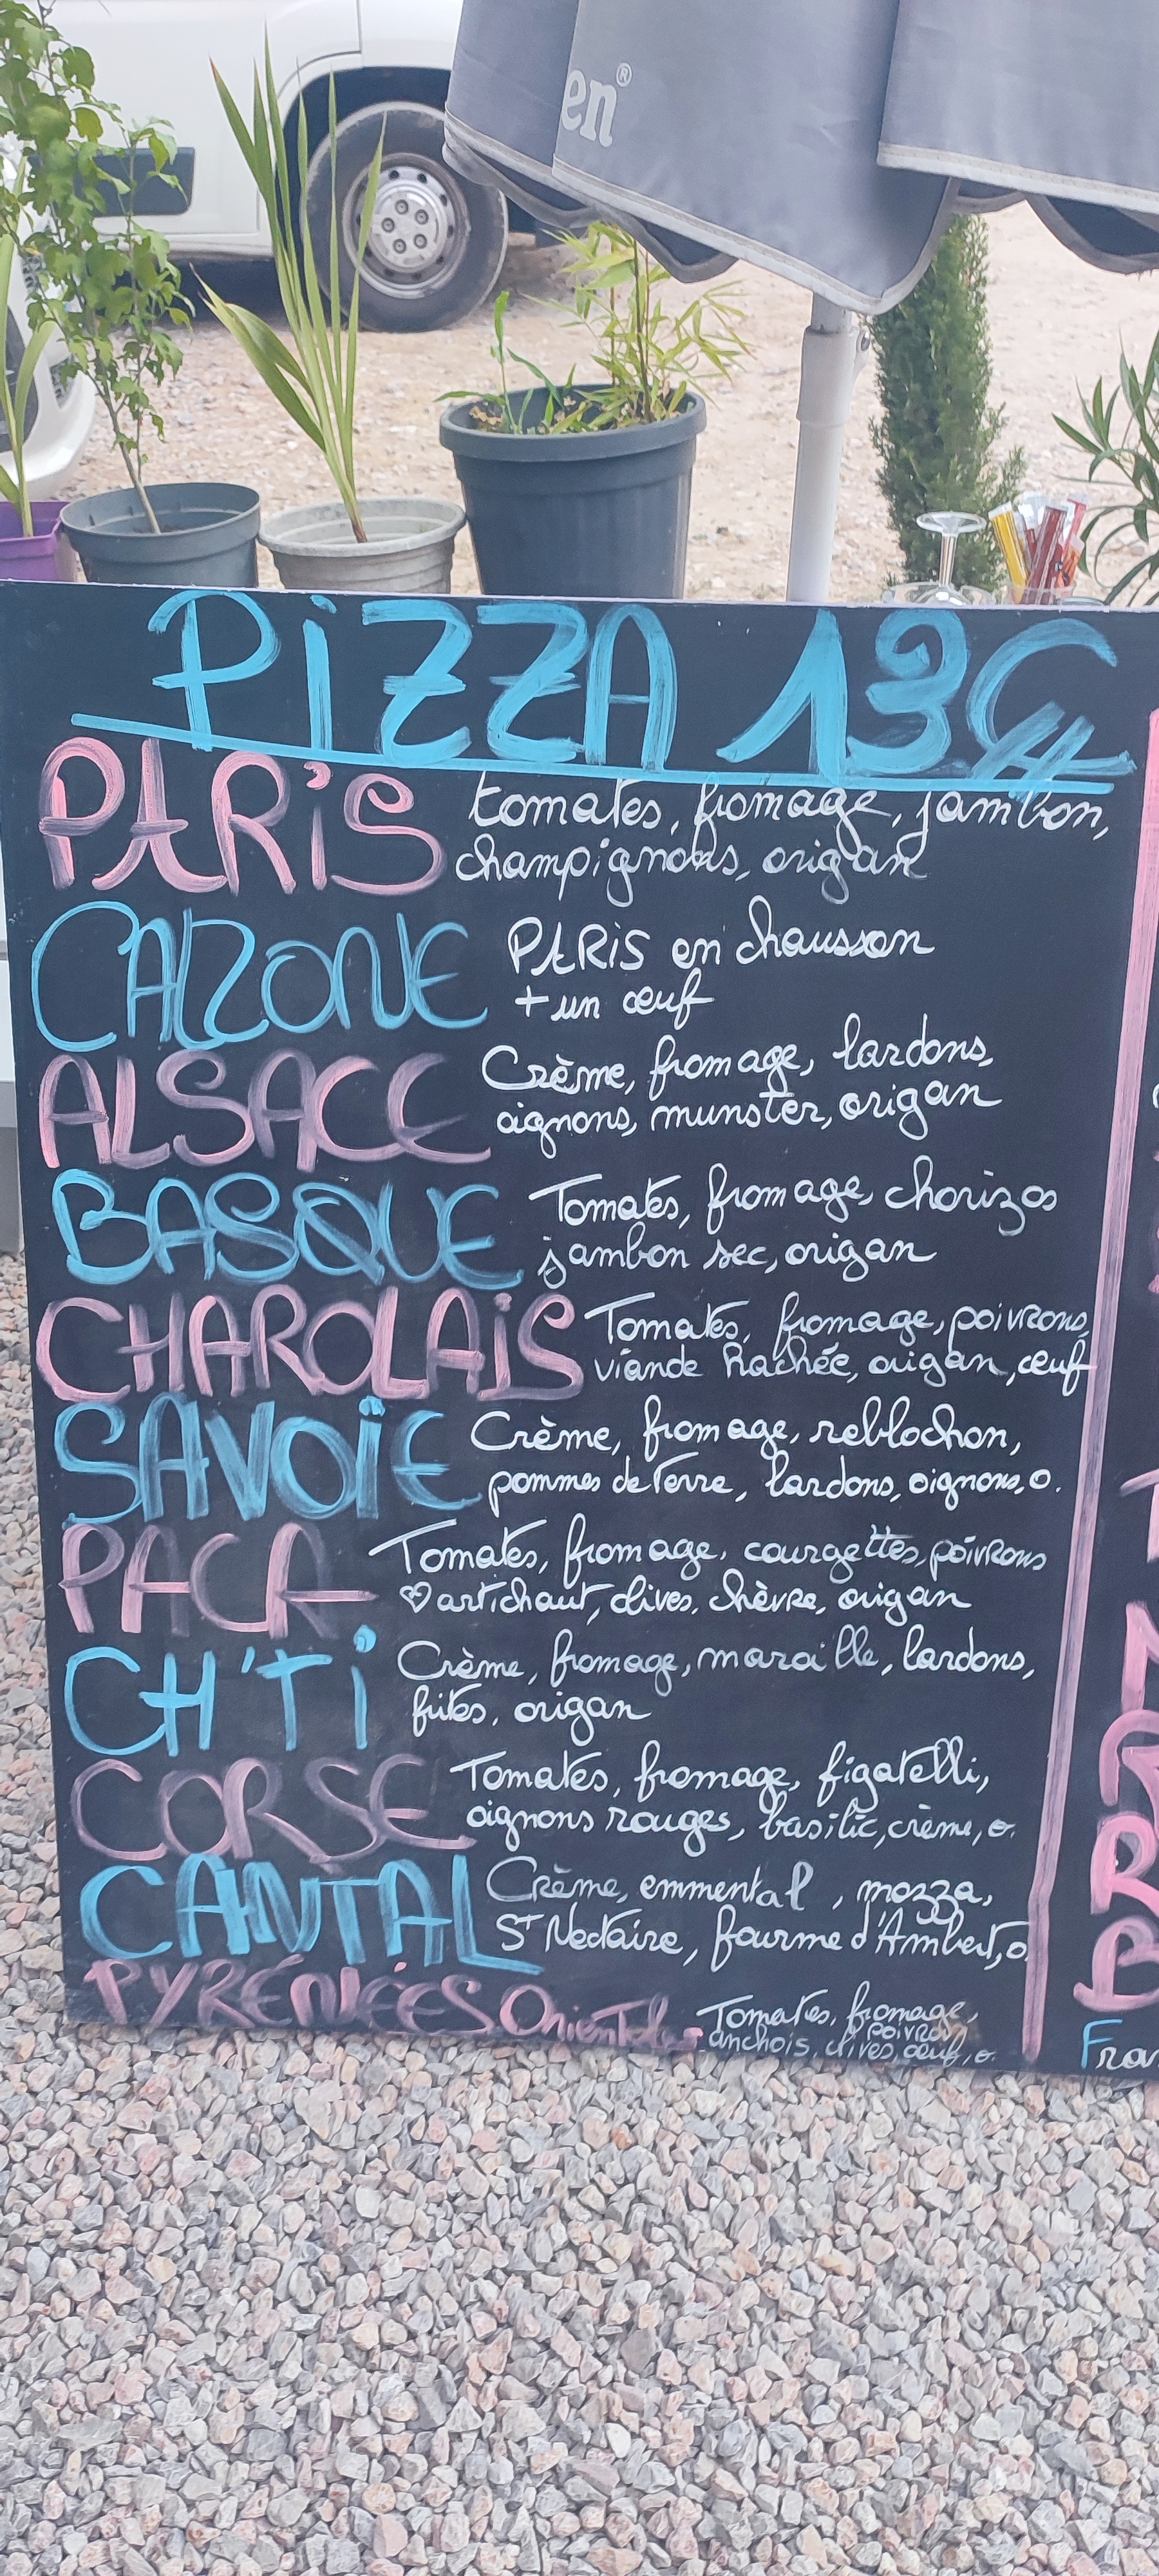 en®
PiZZA 13€
PARiS tomates, fromage, jambon,
champignons, origan
CALZONE PARIS en chausson
+ un œuf
ALSACE Crème, fromage, lardons,
oignons, munster, origan
BASQUE Tomates, fromage, chorizos
jambon sec, origan
CHAROLAiS Tomates, fromage, poivrons,
viande hachée, origan, œuf
SAVOiE Crème, fromage, reblochon,
pommes de terre, lardons, oignons, o.
PACA Tomates, fromage, courgettes, poivrons
♡ artichaut, olives, chèvre, origan
CH'Ti Crème, fromage, maroille, lardons,
frites, origan
CORSE Tomates, fromage, figatelli,
oignons rouges, basilic, crème, o.
CANTAL Crème, emmental, mozza,
St Nectaire, fourme d'Ambert, o.
PYRÉNÉES Orientales Tomates, fromage,
poivron
anchois, olives, œuf, o.
Fra